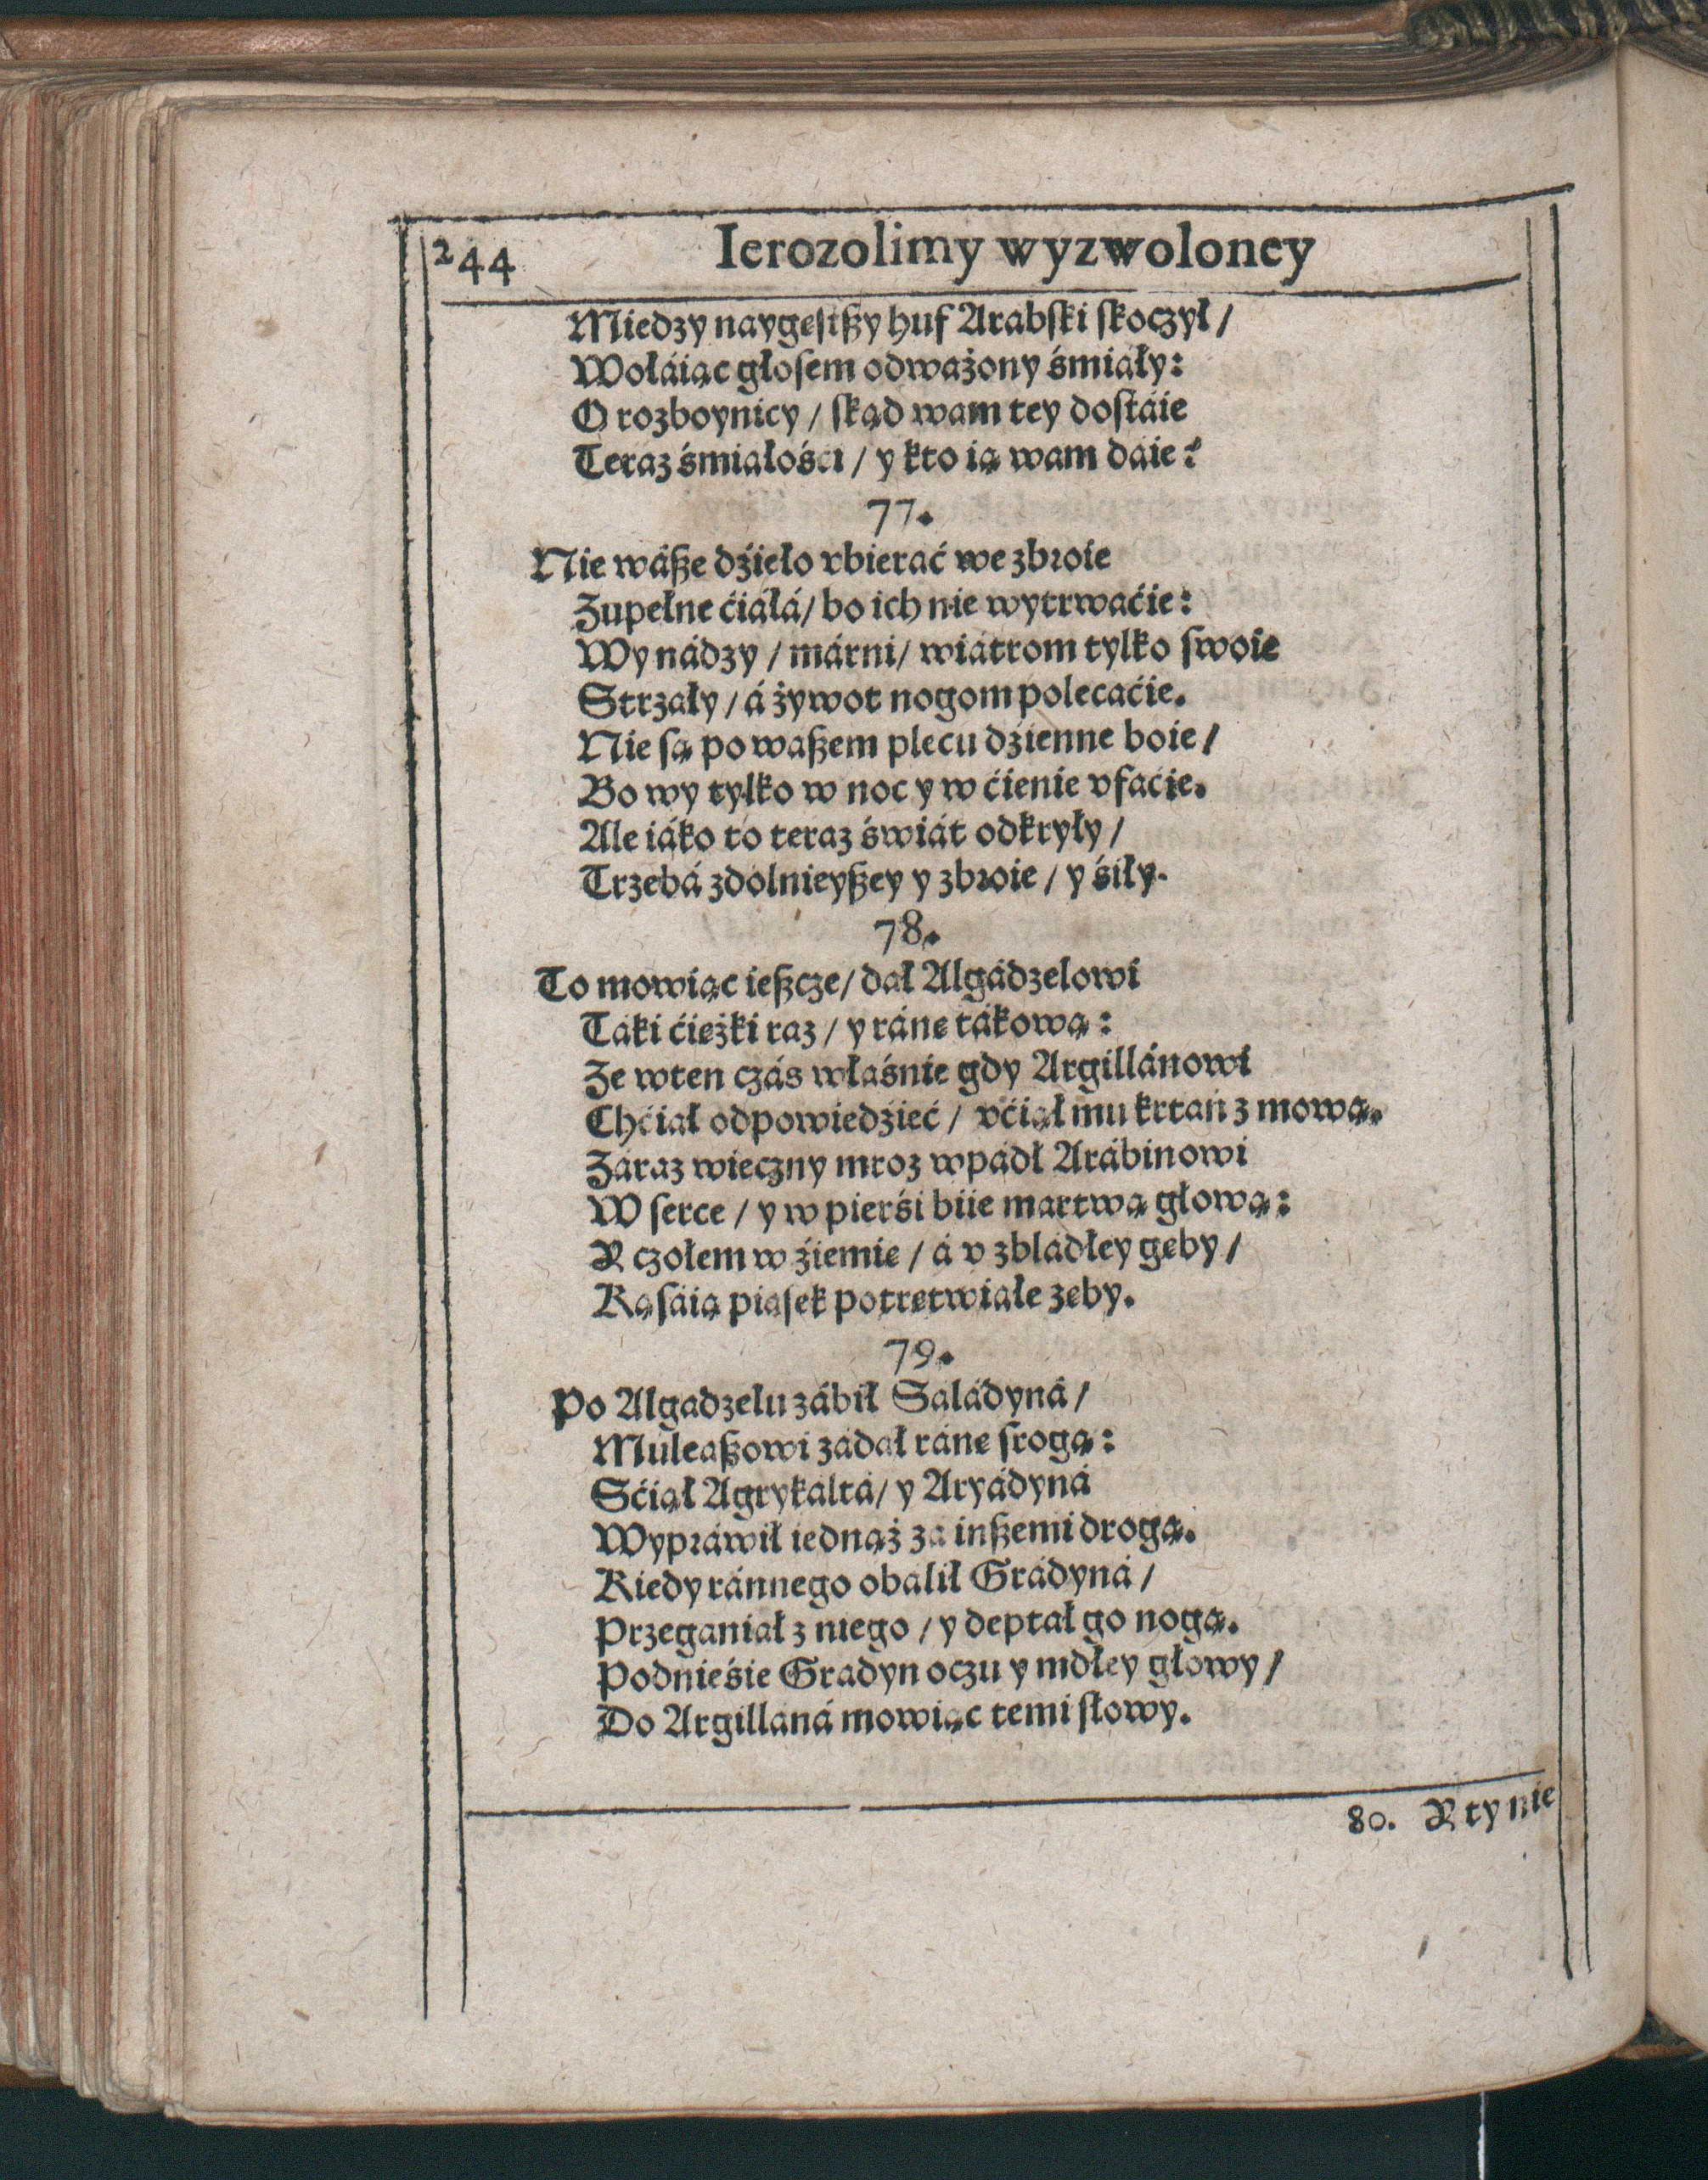 244 Ierozolimy wyzwoloney
Miedzy naygęstßy huf Arabski skoczył /
Wołáiąc głosem odważony śmiáły:
O rozboynicy / skąd wam tey dostáie
Teraz śmiáłości / y kto ią wam dáie?
77.
Nie wáße dźieło vbierać we zbroie
Zupełne ćiáłá / bo ich nie wytrwaćie:
Wy nádzy / márni / wiátrom tylko swoie
Strzáły / á żywot nogom polecaćie.
Nie są po waßem plecu dźienne boie /
Bo wy tylko w noc y w ćienie vfaćie.
Ale iáko to teraz świát odkryły /
Trzebá zdolnieyßey y zbroie / y śiły.
78.
To mowiąc ießcze / dał Algádzelowi
Táki ćiężki raz / y ránę tákową:
Ze wten czás właśnie gdy Argillánowi
Chćiał odpowiedźieć / vćiął mu krtań z mową.
Záraz wieczny mroz wpádł Arábinowi
W serce / y w pierśi biie martwą głową:
Y czołem w źiemię / á v zbládłey gęby /
Kąsáią piasek potrętwiáłe zęby.
79.
Po Algadzelu zábił Saládyná /
Muleaßowi zádał ránę srogą:
Sćiął Agrykáltá / y Aryádyná
Wypráwił iednąż zá inßemi drogą.
Kiedy ránnego obálił Grádyná /
Przeganiał z niego / y deptał go nogą.
Podnieśie Gradyn oczu y mdłey głowy /
Do Argillaná mowiąc temi słowy.
80. Y ty nie